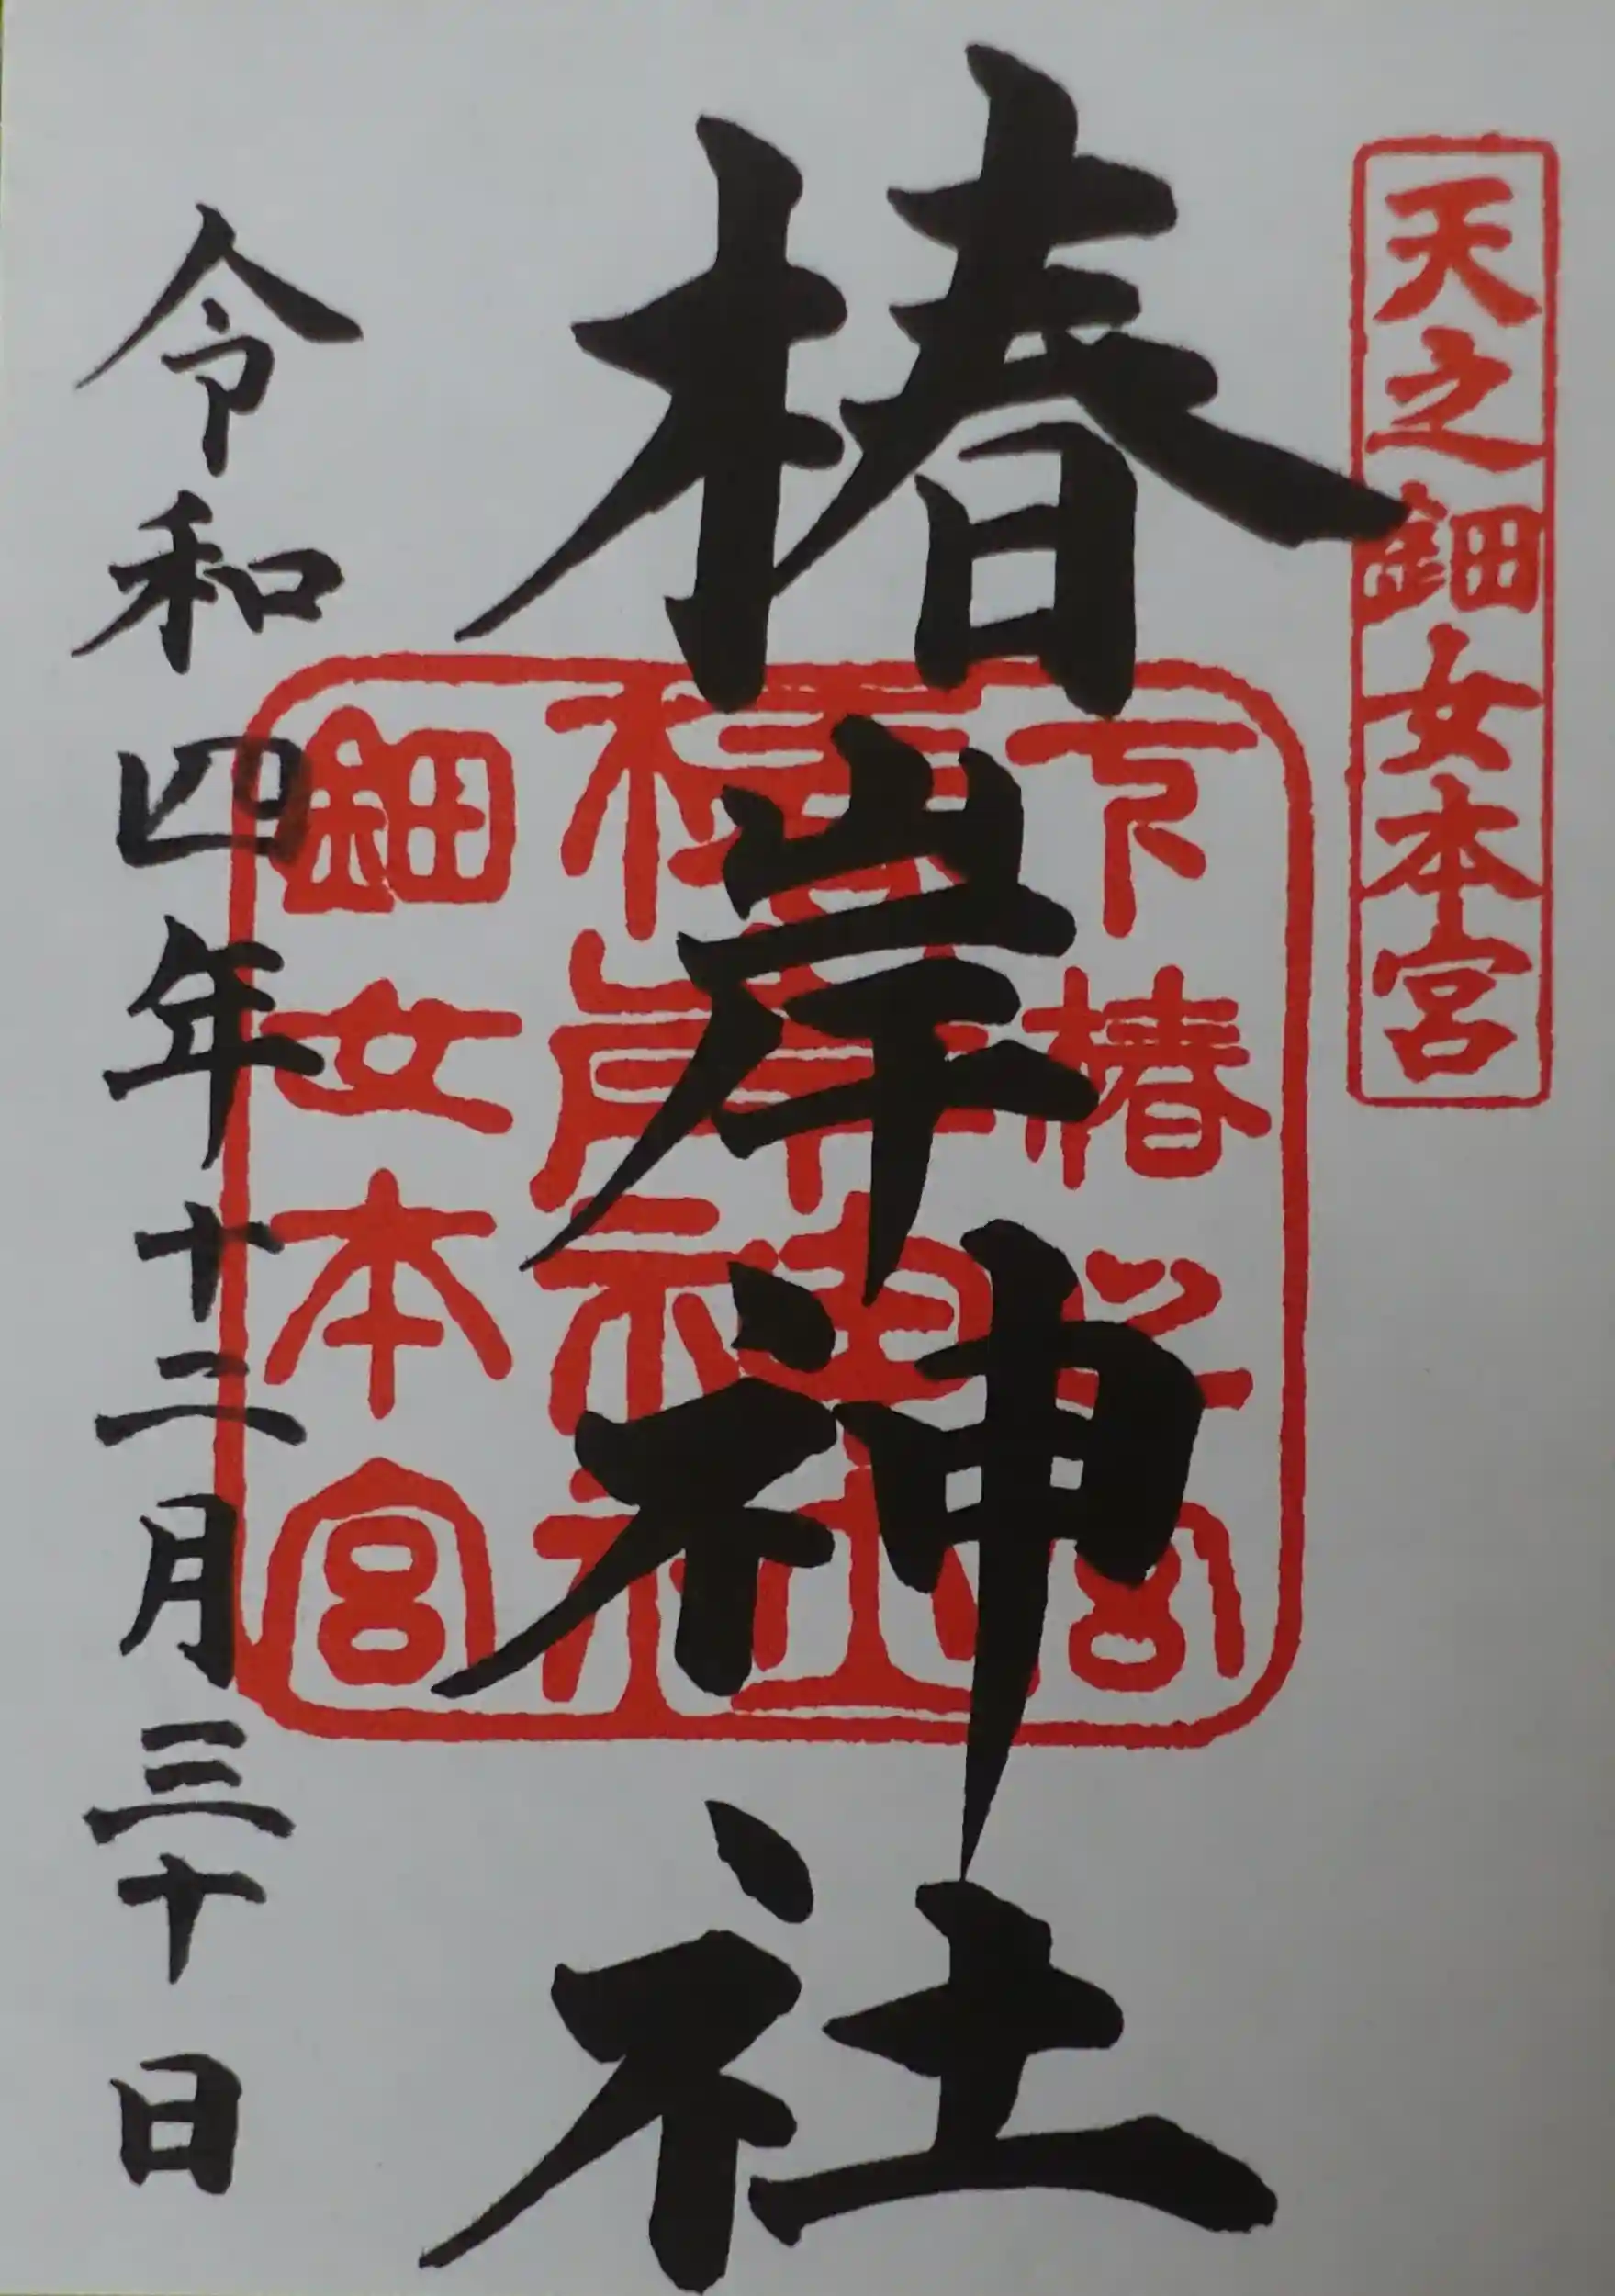 天之鈿女本宮
椿岸神社
下椿
宮
椿岸神社
鈿女本宮
令和四年十二月三十日